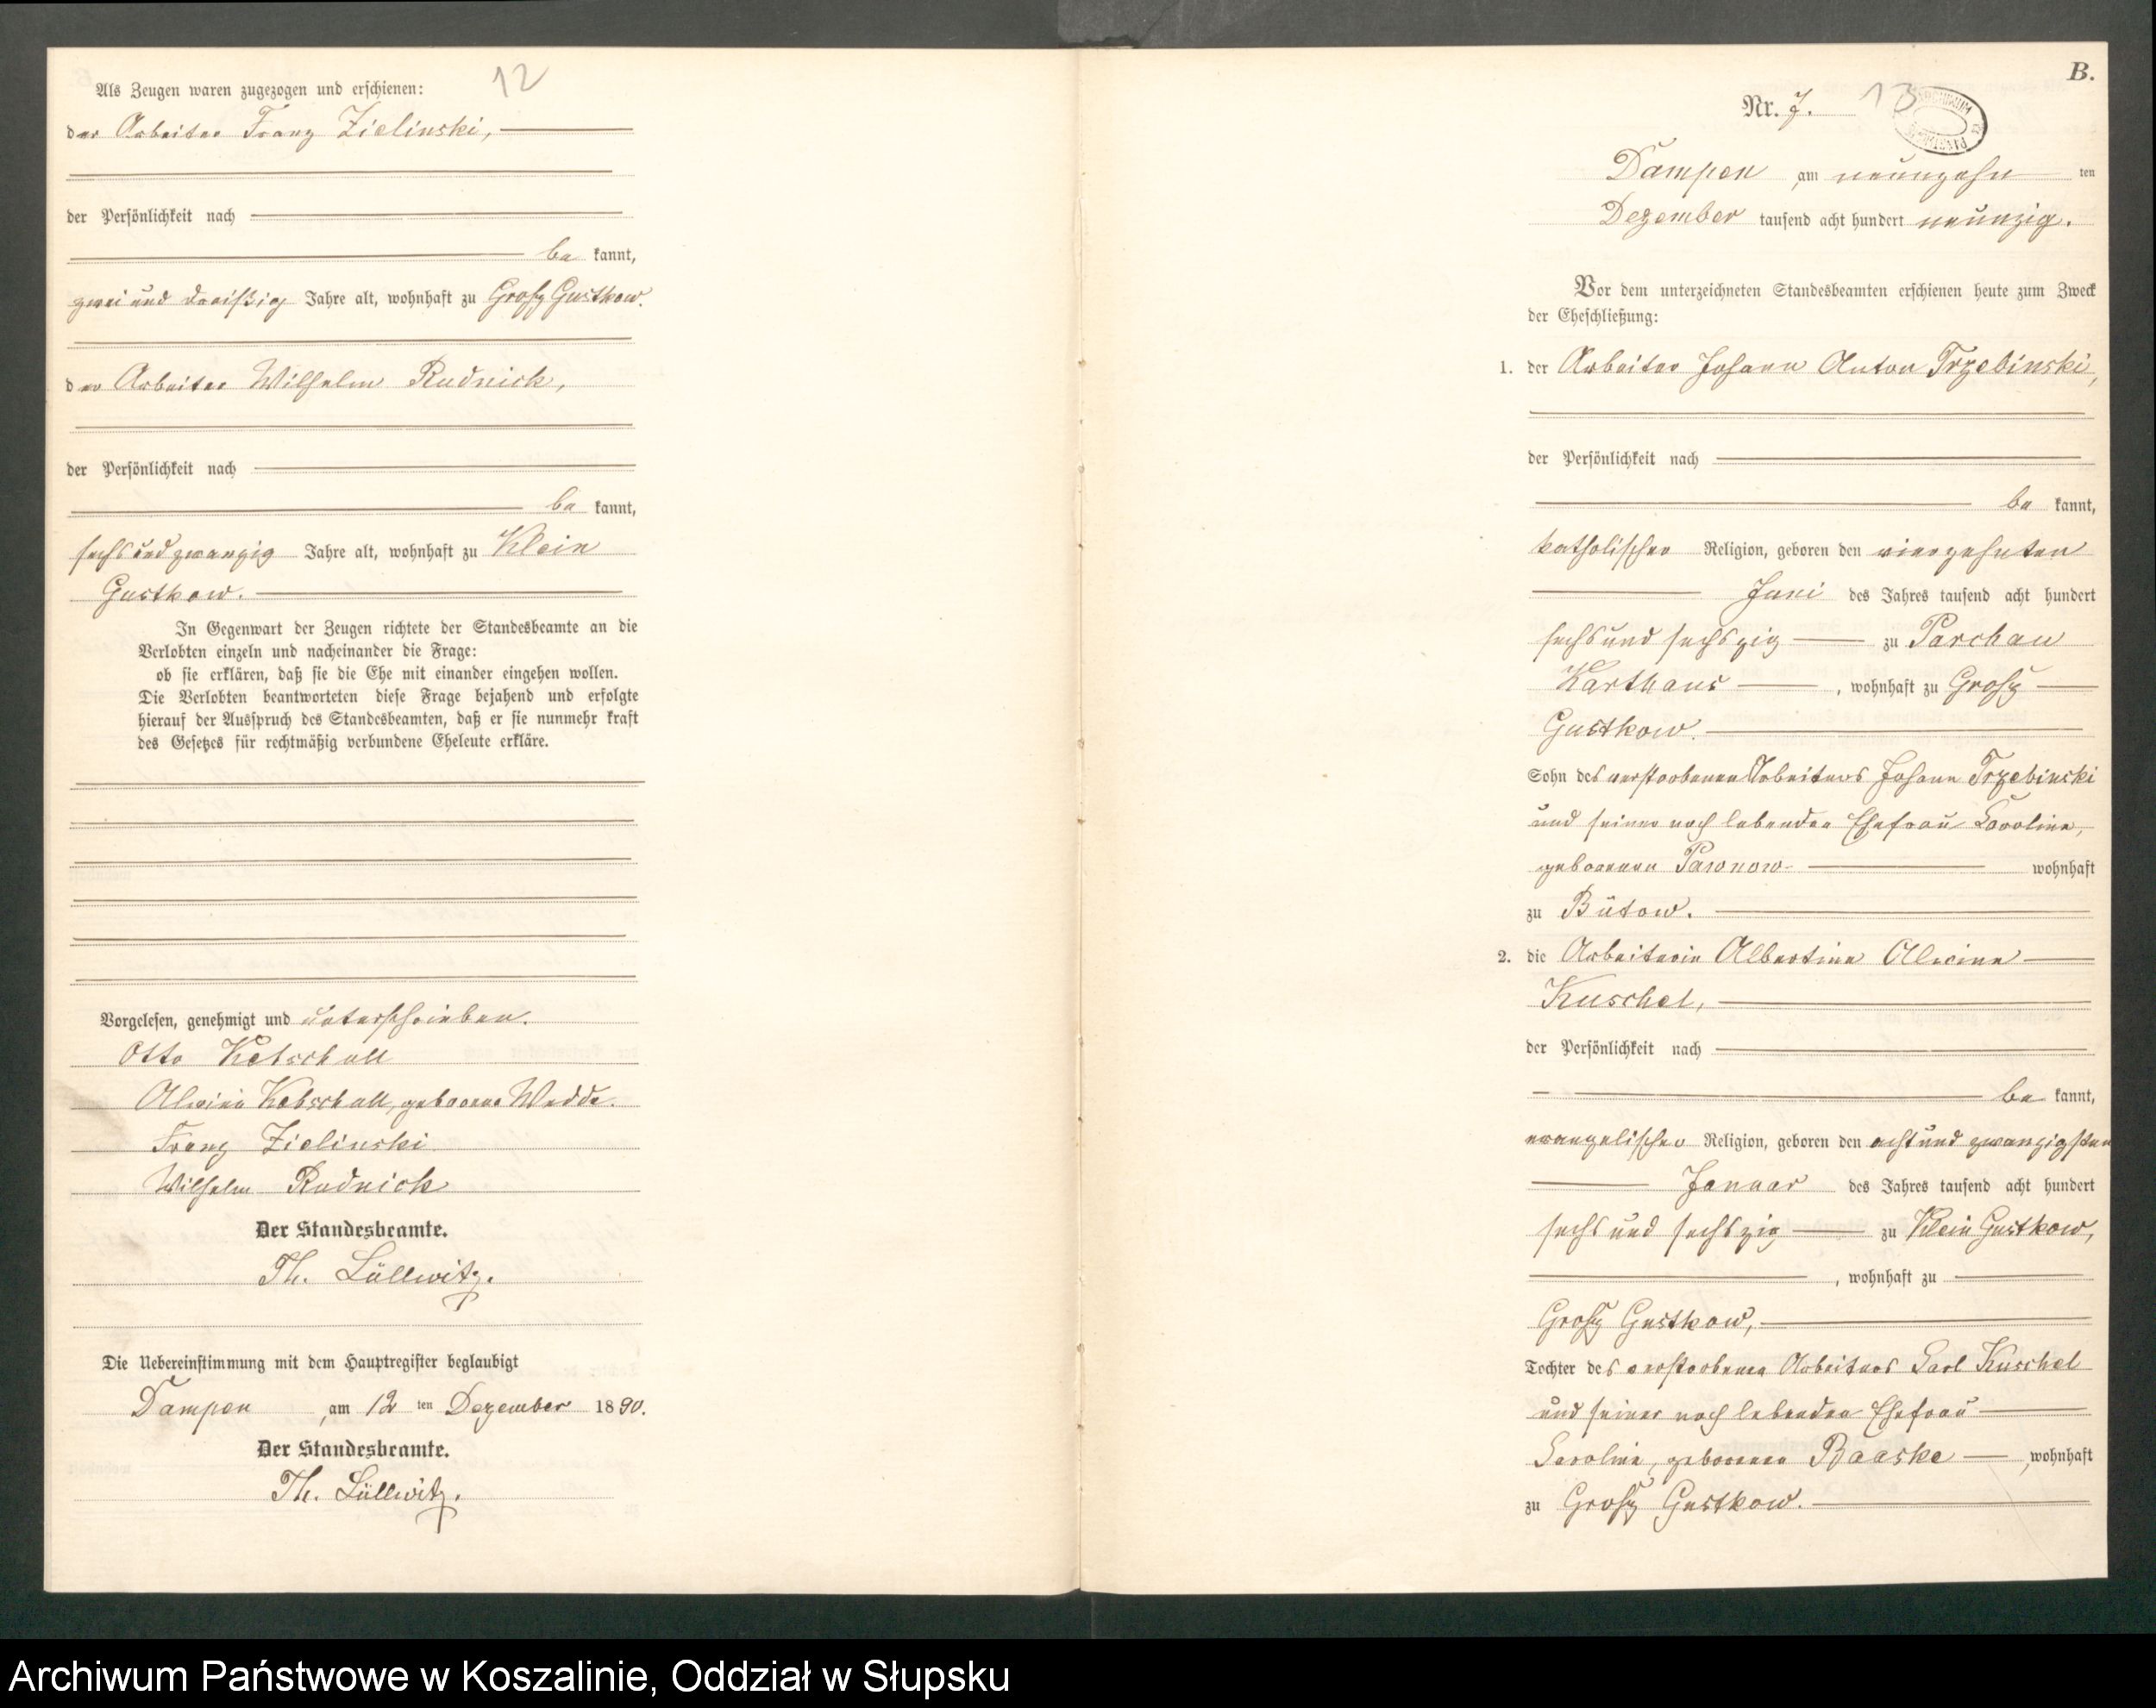 12
Als Zeugen waren zugezogen und erschienen:
der Arbeiter Franz Zielinski,
der Persönlichkeit nach
be kannt,
zwei und dreißig Jahre alt, wohnhaft zu Groß Gustkow.
der Arbeiter Wilhelm Rudnick,
der Persönlichkeit nach
be kannt,
sechs und zwanzig Jahre alt, wohnhaft zu Klein
Gustkow.
In Gegenwart der Zeugen richtete der Standesbeamte an die
Verlobten einzeln und nacheinander die Frage:
ob sie erklären, daß sie die Ehe mit einander eingehen wollen.
Die Verlobten beantworteten diese Frage bejahend und erfolgte
hierauf der Ausspruch des Standesbeamten, daß er sie nunmehr kraft
des Gesetzes für rechtmäßig verbundene Eheleute erkläre.
Vorgelesen, genehmigt und unterschrieben.
Otto Kebschull
Alwine Kebschull, geborene Wedde.
Franz Zielinski
Wilhelm Rudnick
Der Standesbeamte.
Th. Lüllwitz.
Die Uebereinstimmung mit dem Hauptregister beglaubigt
Dampen, am 12 ten Dezember 1890.
Der Standesbeamte.
Th. Lüllwitz.
B.
Nr. 7. 13
Dampen, am neunzehn ten
Dezember tausend acht hundert neunzig.
Vor dem unterzeichneten Standesbeamten erschienen heute zum Zweck
der Eheschließung:
1. der Arbeiter Johann Anton Trzebinski,
der Persönlichkeit nach
be kannt,
katholischer Religion, geboren den vierzehnten
Juni des Jahres tausend acht hundert
sechs und sechszig zu Parchau
Karthaus, wohnhaft zu Groß
Gustkow.
Sohn des verstorbenen Arbeiters Johann Trzebinski
und seiner noch lebenden Ehefrau Caroline,
geborenen Paronow wohnhaft
zu Bütow.
2. die Arbeiterin Albertine Alwine
Kuschel,
der Persönlichkeit nach
be kannt,
evangelischer Religion, geboren den acht und zwanzigsten
Januar des Jahres tausend acht hundert
sechs und sechszig zu Klein Gustkow,
, wohnhaft zu
Groß Gustkow,
Tochter des verstorbenen Arbeiters Carl Kuschel
und seiner noch lebenden Ehefrau
Caroline, geborenen Baaske, wohnhaft
zu Groß Gustkow.
Archiwum Państwowe w Koszalinie, Oddział w Słupsku